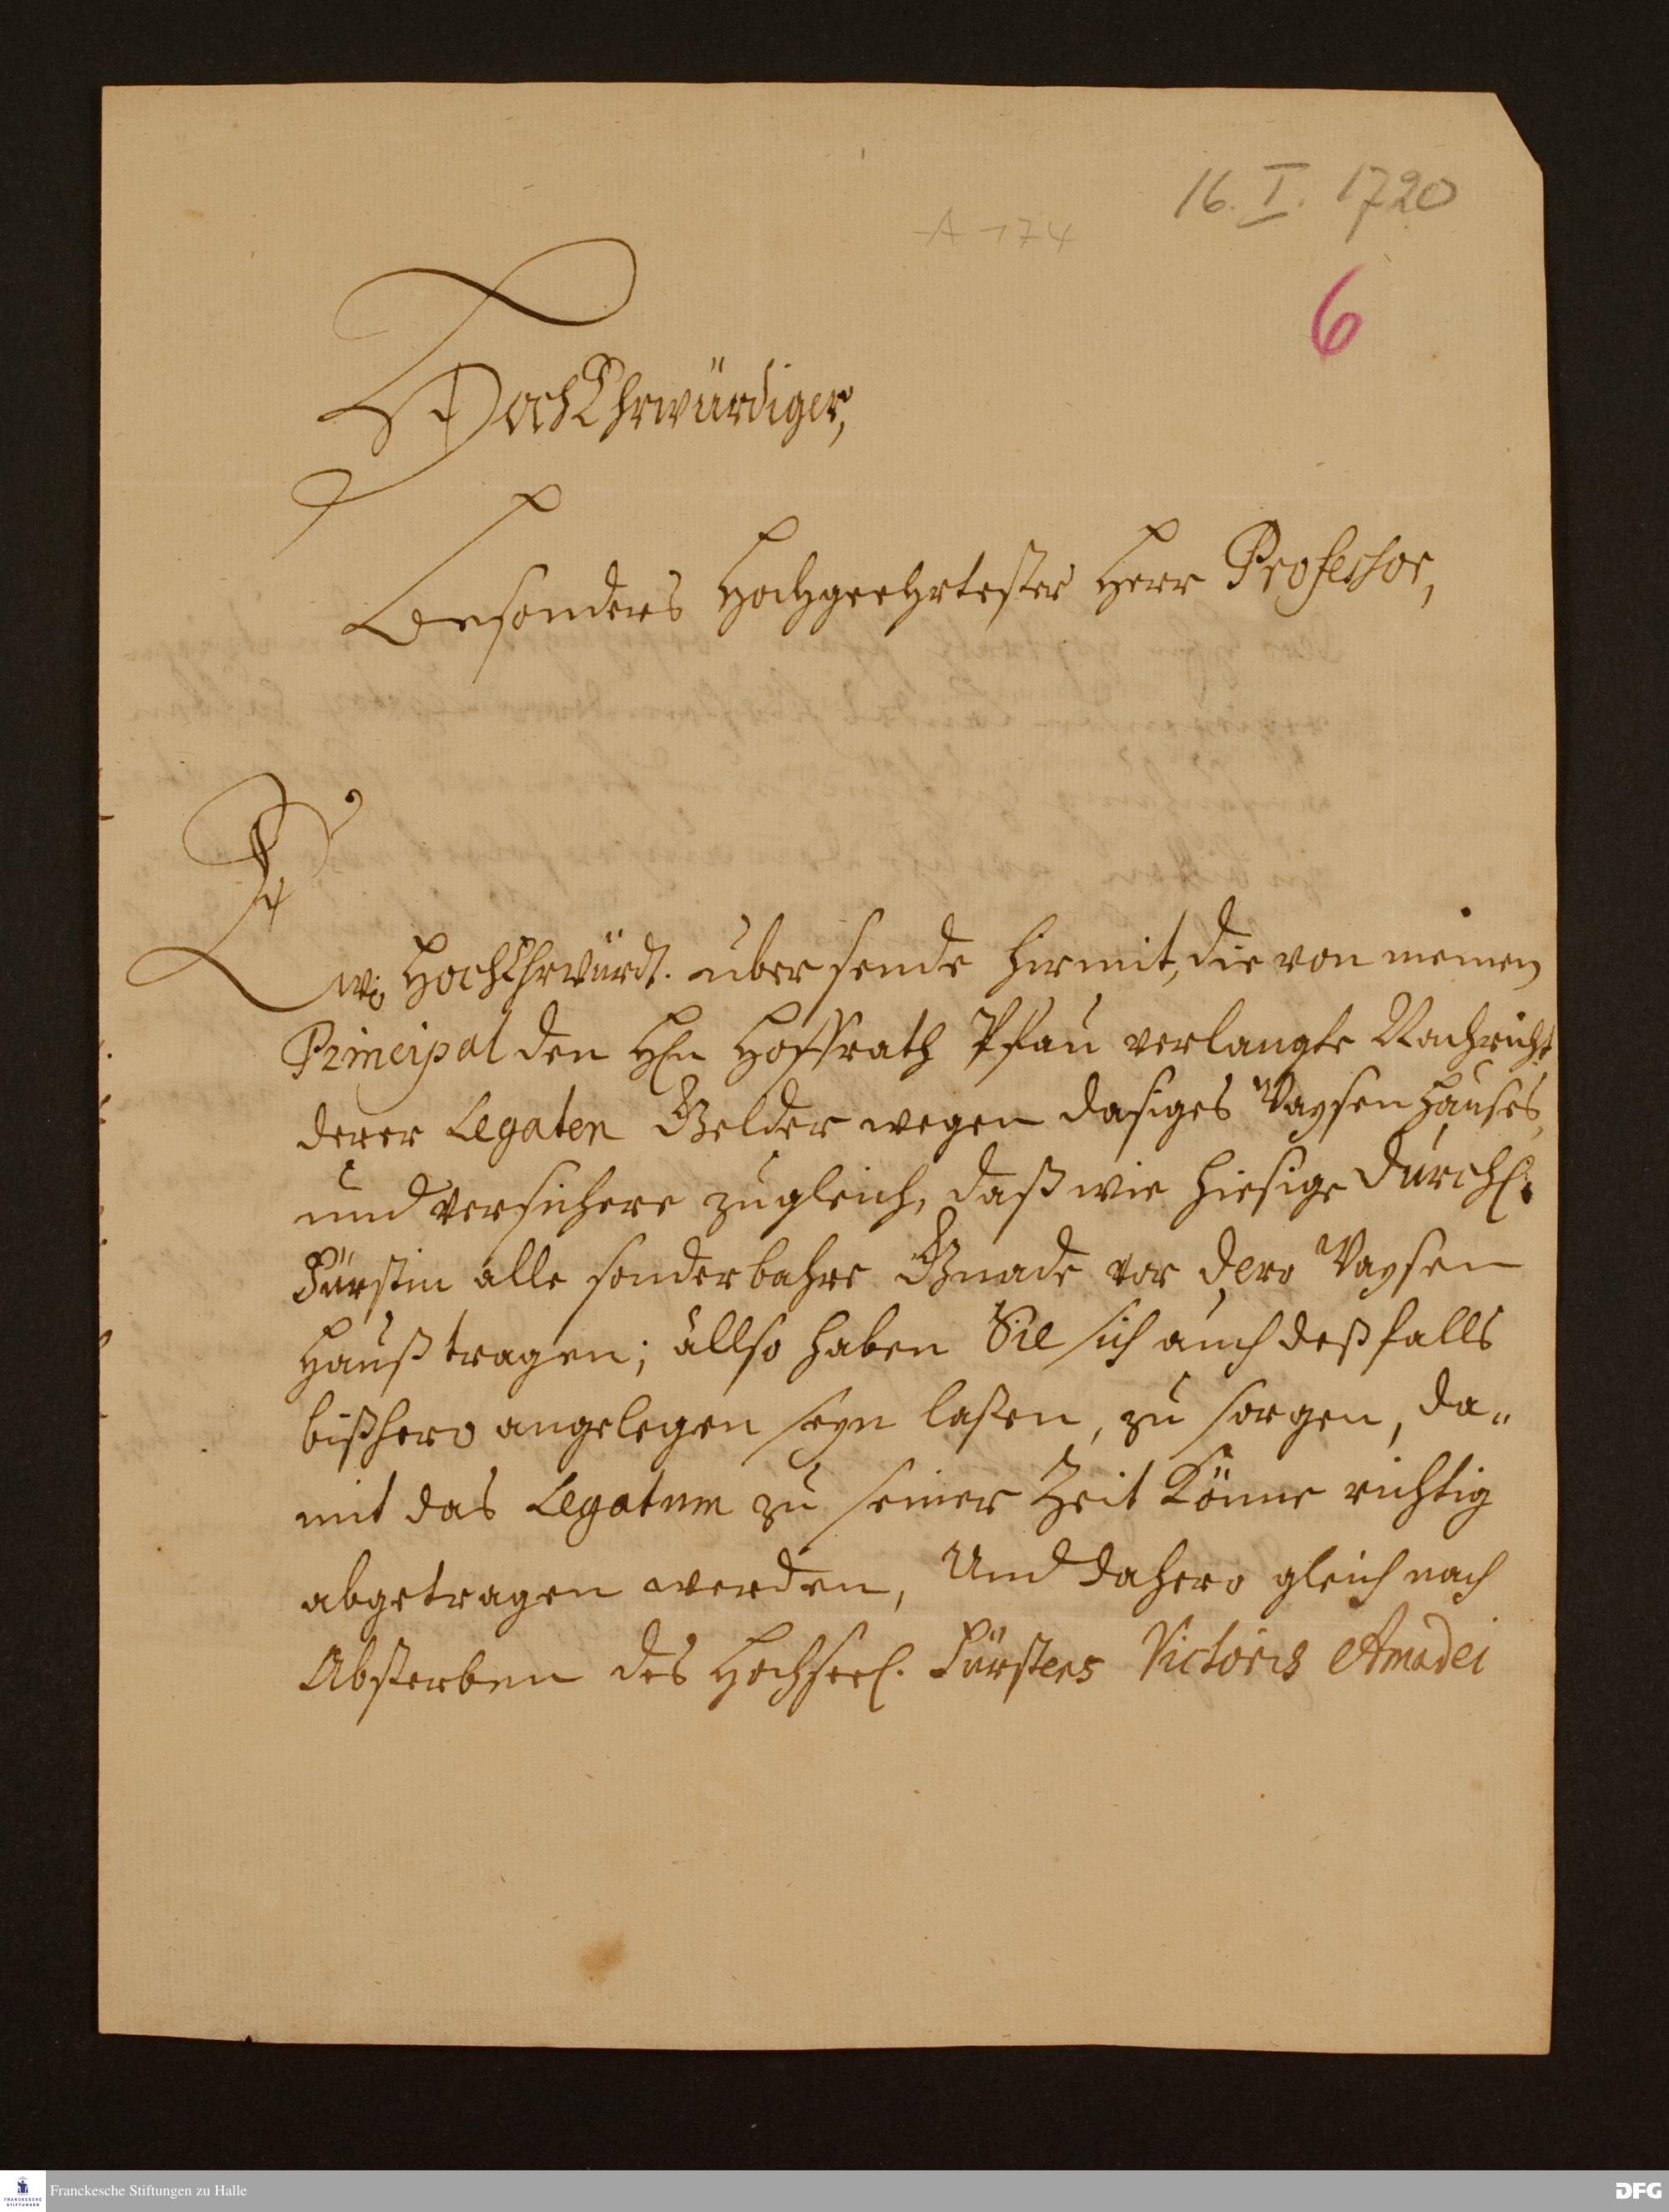 16. I. 1720
A 174
6
HochEhrwürdiger,
Besonders Hochgeehrtester Herr Professor,
Ew. HochEhrwürd. übersende hirmit, die von meinen
Principal den HEn Hoffrath Pfau verlangte Nachricht
derer Legaten Gelder wegen dasiges Waysen Hauses,
und versichere zugleich, daß wie hiesige Durchl.
Fürstin alle sonderbahre Gnade vor dero Waysen
Hauß tragen; allso haben Sie sich auch deßfalls
bißhero angelegen seyn laßen, zu sorgen, da„
mit das Legatum zu seiner Zeit könne richtig
abgetragen werden, Und dahero gleich nach
Absterben des Hochseel. Fürstens Victoris Amadei
Franckesche Stiftungen zu Halle
DFG